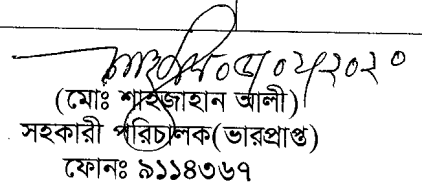 (মোঃ শাহজাহান আলী)
সহকারী পরিচালক(ভারপ্রাপ্ত)
ফোনঃ ৯১১৪৩৬৭